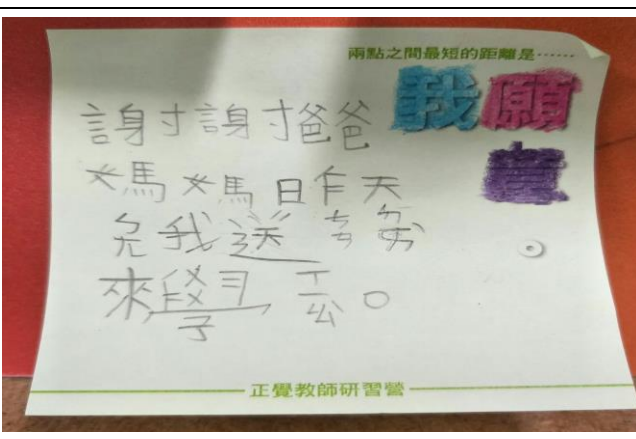 兩點之間最短的距離是……
我願
意
。
謝謝爸爸
媽媽昨天
我送
來
正覺教師研習營